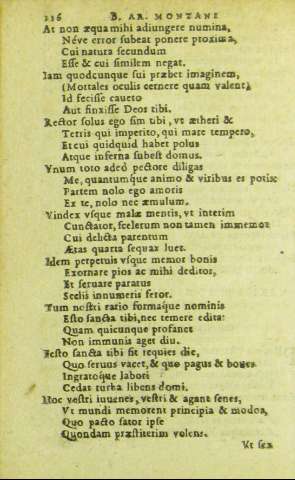 116 B. AR. MONTANI
At non æqua mihi adiungere numina,
Néve error subeat ponere proxima,
Cui natura secundum
Esse & cui similem negat.
Iam quodcunque sui præbet imaginem,
(Mortales oculi cernere quam valent)
Id fecisse caueto
Aut finxisse Deos tibi.
Rector solus ego sim tibi, vt ætheri &
Terris qui imperito, qui mare tempero,
Et cui quidquid habet polus
Atque inferna subest domus.
Vnum toto adeò pectore diligas
Me, quantumque animo & viribus es potis:
Partem nolo ego amoris
Ex te, nolo nec æmulum.
Vindex vsque malæ mentis, vt interim
Cunctator, scelerum non tamen immemor
Cui delicta parentum
Ætas quarta sequax luet.
Idem perpetuis vsque memor bonis
Exornare pios ac mihi deditos,
Et seruare paratus
Seclis innumeris feror.
Tum nostri ratio formaque nominis
Esto sancta tibi, nec temere edita:
Quam quicunque profanet
Non immunis aget diu.
Festo sancta tibi sit requies die,
Quo seruus vacet, & quo pagus & boues
Ingratoque labori
Cedat turba libens domi.
Hoc vestri iuuenes, vestri & agant senes,
Vt mundi memorent principia & modos,
Quo pacto sator ipse
Quondam præstiterim volens.
Vt sex